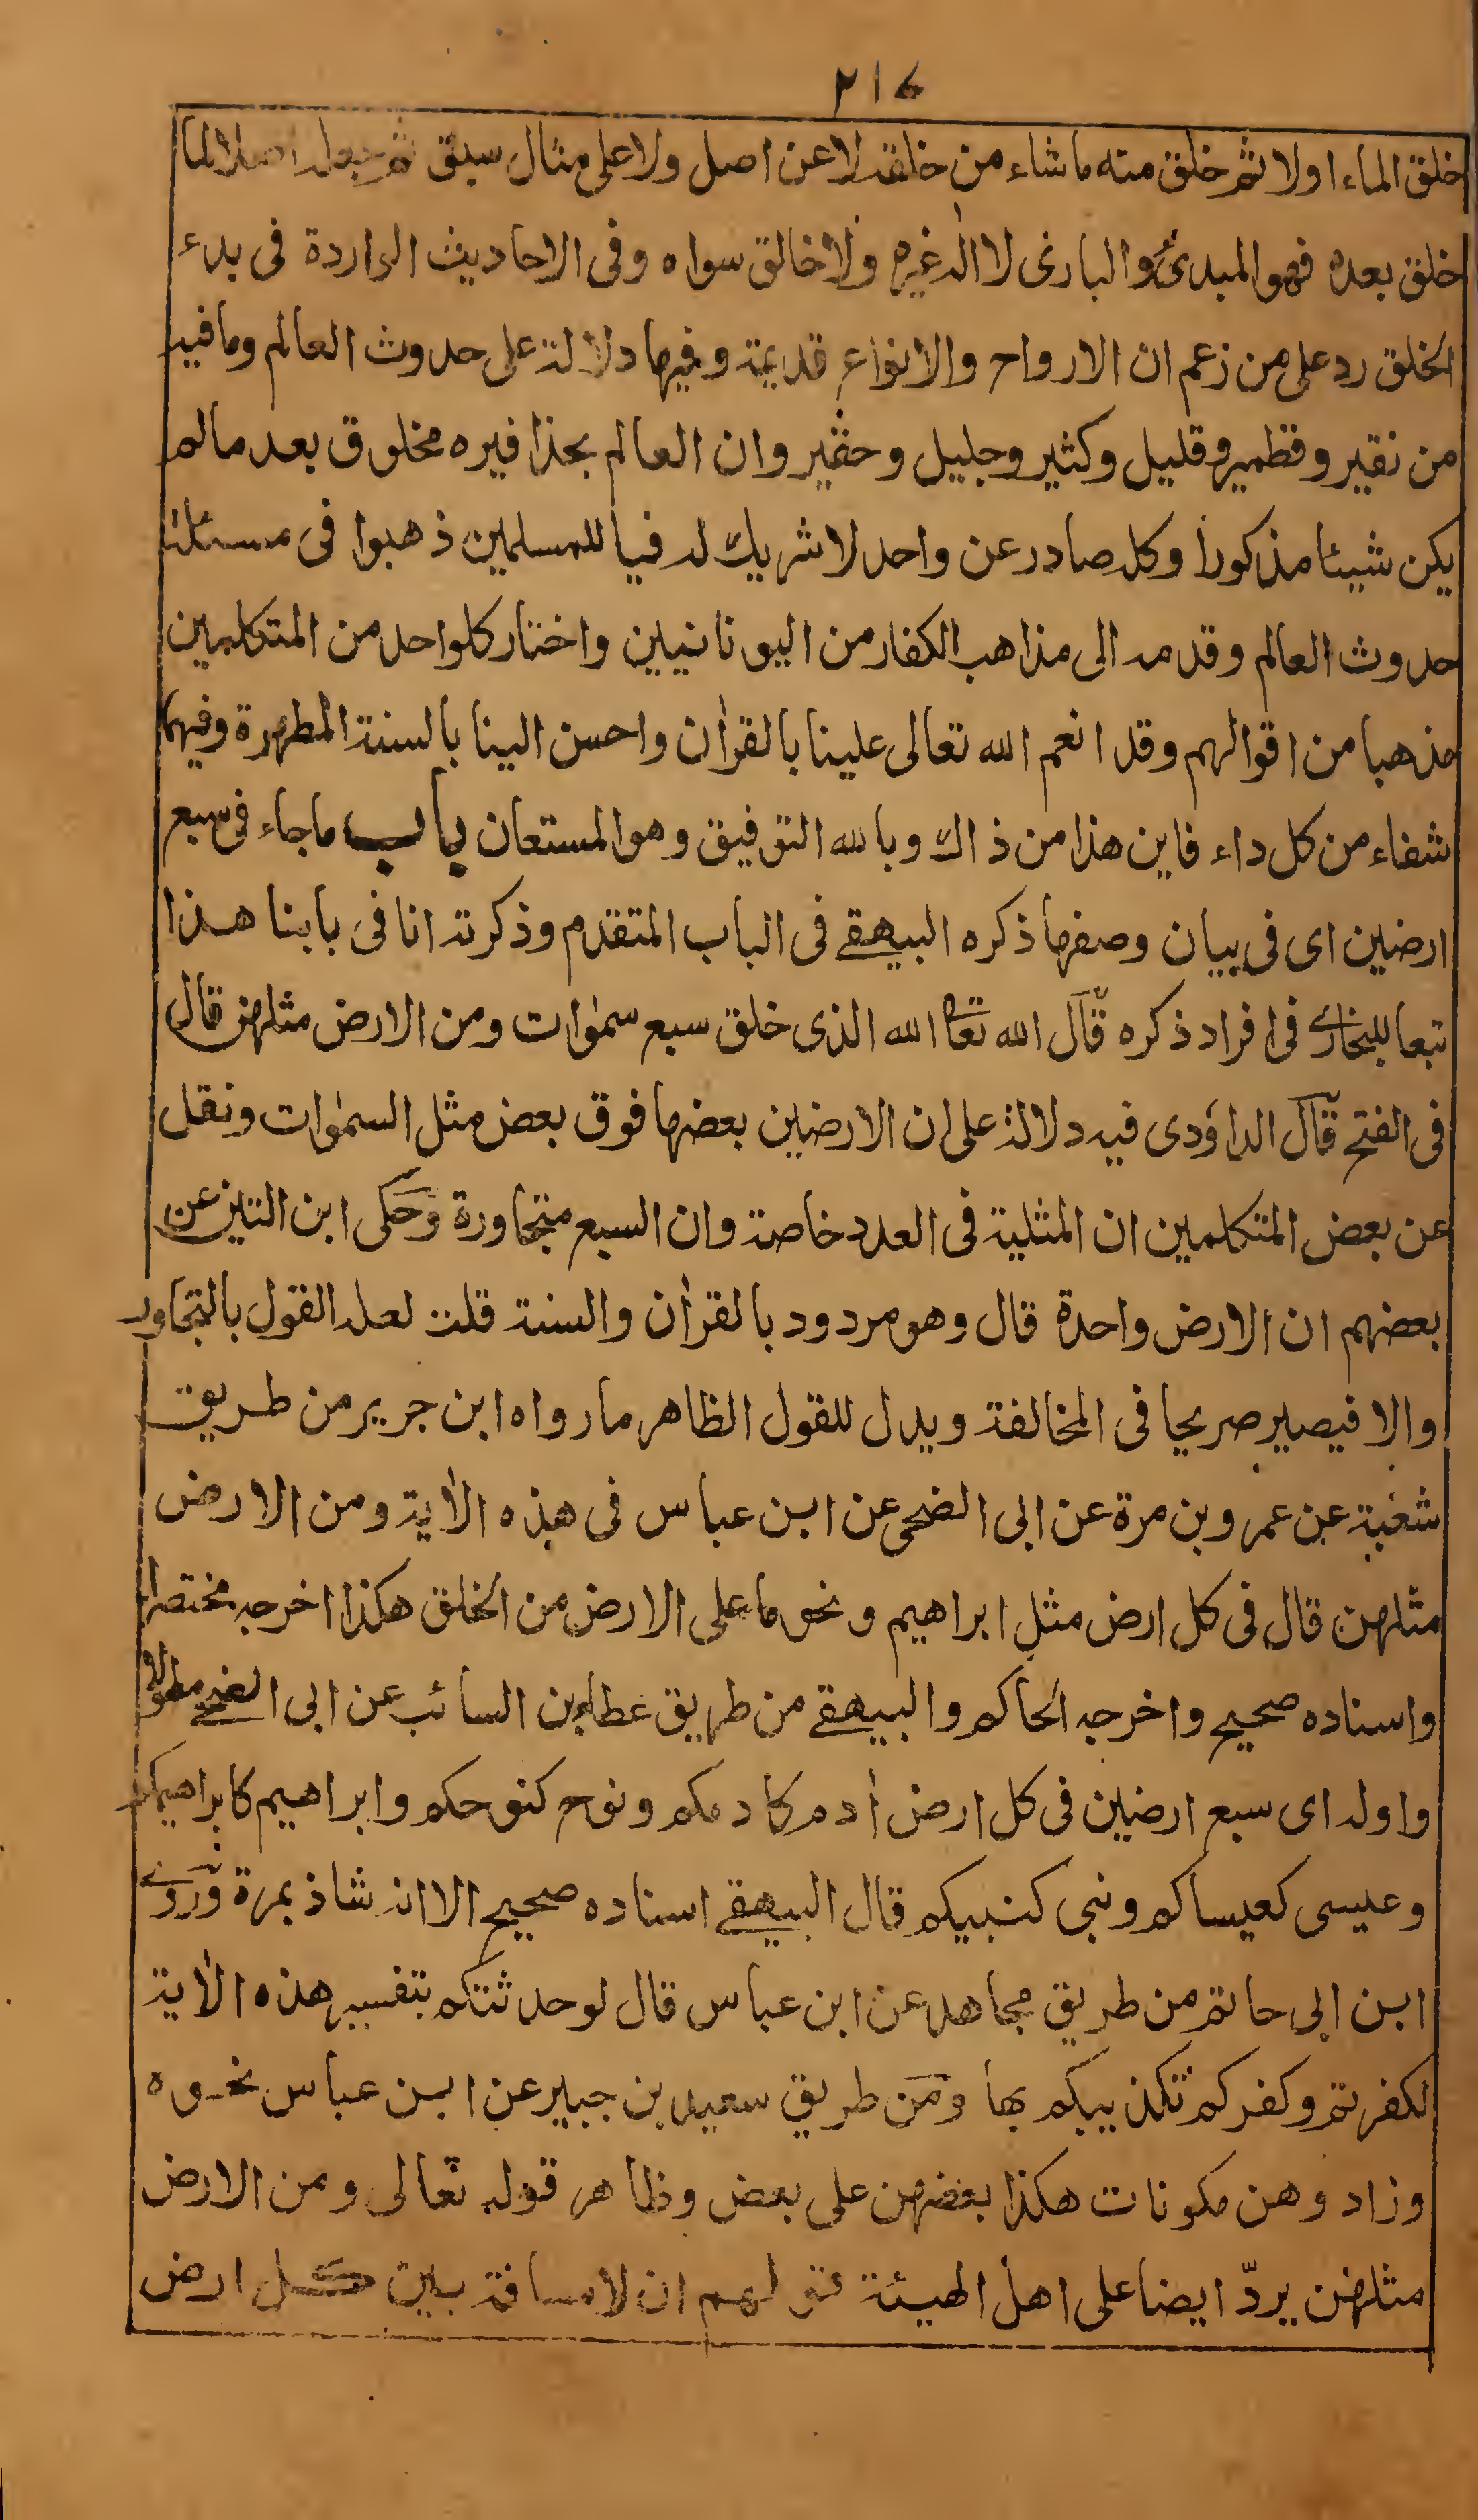 ٢١٤
خلق الماء اولا ثم خلق منه ما شاء من خلقه لا عن اصل ولا على مثال سبق ثم جعله اصلا لما
خلق بعده فهو المبدئ والبارئ لا اله غيره ولا خالق سواه وفى الاحاديث الواردة فى بدء
الخلق رد على من زعم ان الارواح والانواع قديمة وفيها دلالة على حدوث العالم وما فيه
من نقير وقطمير وقليل وكثير وجليل وحقير وان العالم بحذافيره مخلوق بعد ما لم
يكن شيئا مذكورا وكل صادر عن واحد لا شريك له فيا للمسلمين ذهبوا فى مسئلة
حدوث العالم وقدمه الى مذاهب الكفار من اليونانيين واختار كلواحد من المتكلمين
مذهبا من اقوالهم وقد انعم الله تعالى علينا بالقراٰن واحسن الينا بالسنة المطهرة وفيهما
شفاء من كل داء فاين هذا من ذاك وبالله التوفيق وهو المستعان باب ما جاء فى سبع
ارضين اى فى بيان وصفها ذكره البيهقے فى الباب المتقدم وذكرته انا فى بابنا هذا
تبعا للبخارے فى افراد ذكره قال الله تعا الله الذى خلق سبع سمٰوات ومن الارض مثلهن قال
فى الفتح قال الداؤدى فيه دلالة على ان الارضين بعضها فوق بعض مثل السمٰوات ونقل
عن بعض المتكلمين ان المثلية فى العدد خاصة وان السبع متجاورة وحكى ابن التين عن
بعضهم ان الارض واحدة قال وهو مردود بالقراٰن والسنة قلت لعله القول بالتجاور
والا فيصير صريحا فى المخالفة ويدل للقول الظاهر ما رواه ابن جرير من طريق
شعبة عن عمرو بن مرة عن ابى الضحى عن ابن عباس فى هذه الاٰية ومن الارض
مثلهن قال فى كل ارض مثل ابراهيم ونحو ما على الارض من الخلق هكذا اخرجه مختصرا
واسناده صحيح واخرجه الحاكم والبيهقے من طريق عطاء بن السائب عن ابى الضحے مطولا
واوله اى سبع ارضين فى كل ارض اٰدم كاٰدمكم ونوح كنوحكم وابراهيم كابراهيمكم
وعيسى كعيساكم ونبى كنبيكم قال البيهقے اسناده صحيح الا انه شاذ بمرة وروے
ابن ابى حاتم من طريق مجاهد عن ابن عباس قال لو حدثتكم بتفسير هذه الاٰية
لكفرتم وكفركم تكذيبكم بها ومن طريق سعيد بن جبير عن ابن عباس نحوه
وزاد وهن مكونات هكذا بعضهن على بعض وظاهر قوله تعالى ومن الارض
مثلهن يردّ ايضا على اهل الهيئة قولهم ان لا مسافة بين كل ارض